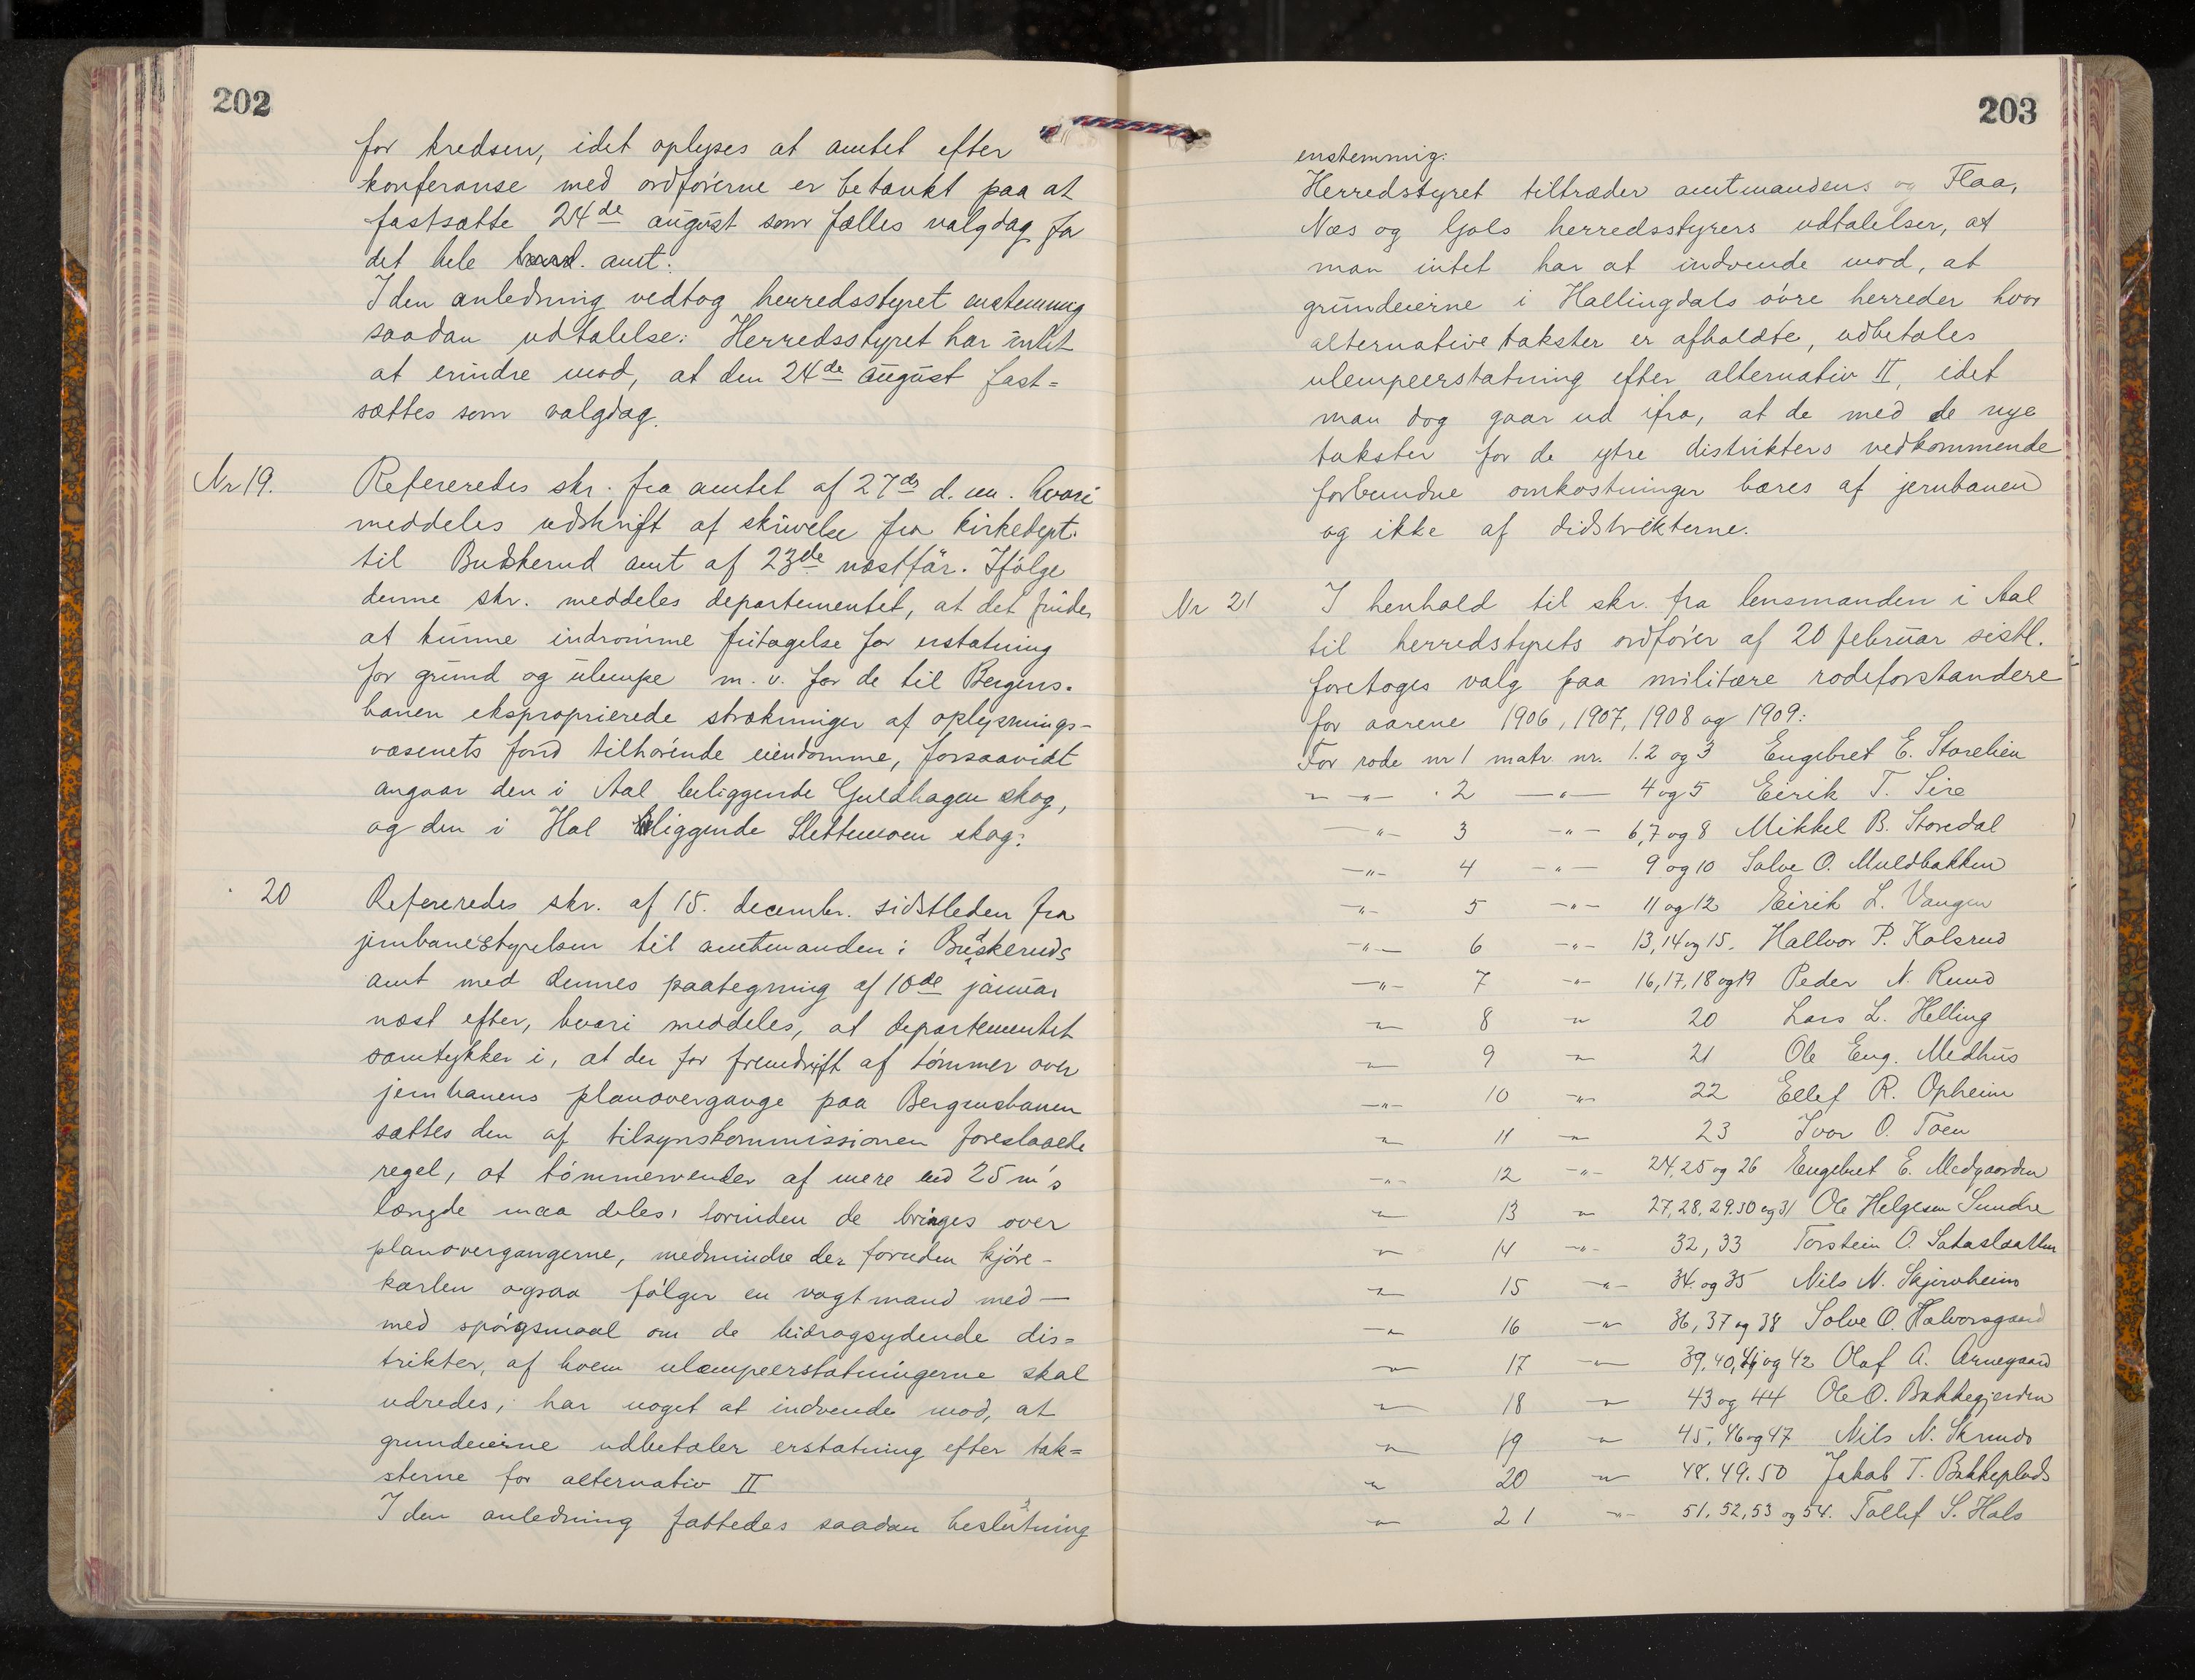 202
for kredsen, idet oplyses at amtet efter
konferanse med ordførerne er betænkt paa at
fastsætte 24de august som fælles valgdag for
det hele amt:
I den anledning vedtog herredsstyret enstemmig
saadan udtalelse: Herredsstyret har intet
at erindre mod, at den 24de august fast=
sættes som valgdag.
Nr 19. Refereredes skr. fra amtet af 27de d. m. hvori
meddeles udskrift af skrivelse fra kirkedept.
til Budskerud amt af 23de næstfär. Ifølge
denne skr. meddeles departementet, at det finder
at kunne indrømme fritagelse for erstatning
for grund og ulempe m. v. for de til Bergens-
banen eksproprierede strækninger af oplysnings-
væsenets fond tilhørende eiendomme, forsaavidt
angaar den i Aal beliggende Guldhagen skog,
og den i Hol beliggende Slettemoen skog:
20 Refereredes skr. af 15. decembr. sidstleden fra
jernbanestyrelsen til amtmanden i Budskeruds
amt med dennes paategning af 10de januar
næst efter, hvori meddeles, at departementet
samtykker i, at der for fremdrift af tømmer over
jernbanens planovergange paa Bergensbanen
sættes den af tilsynskommissionen foreslaaede
regel, at tømmervender af mere end 25 m's
længde maa deles, forinden de bringes over
planovergangerne, medmindre der foruden kjøre-
karlen ogsaa følger en vagtmand med —
med spørgsmaal om de bidragsydende dis=
trikter, af hvem ulæmpeerstatningerne skal
udredes, har noget at indvende mod, at
grundeierne udbetaler erstatning efter tak=
sterne for alternativ II
I den anledning fattedes saadan beslutning
203
enstemmig:
Herredstyret tiltræder amtmandens og Flaa,
Næs og Gols herredsstyrers udtalelser, at
man intet har at indvende mod, at
grundeierne i Hallingdals øvre herreder hvor
alternative takster er afholdte, udbetales
ulempeerstatning efter alternativ II, idet
man dog gaar ud ifra, at de med de nye
takster for de ytre distrikters vedkommende
forbundne omkostninger bæres af jernbanen
og ikke af didstrikterne.
Nr 21 I henhold til skr. fra lensmanden i Aal
til herredstyrets ordfører af 20 februar sistl.
foretoges valg paa militære rodeforstandere
for aarene 1906, 1907, 1908 og 1909:
For rode nr 1 matr. nr. 1.2 og 3 Engebret E. Storelien
— " — 2 — " — 4 og 5 Eirik T. Sire
— " — 3 — " — 6,7 og 8 Mikkel B. Storedal
— " — 4 — " — 9 og 10 Solve O. Muldbakken
— " — 5 — " — 11 og 12 Eirik L. Vangen
— " — 6 — " — 13, 14 og 15. Hallvor P. Kolsrud
— " — 7 — " — 16, 17, 18 og 19 Peder N. Ruud
— " — 8 — " — 20 Lars L. Helling
— " — 9 — " — 21 Ole Eng. Medhus
— " — 10 — " — 22 Ellef R. Opheim
— " — 11 — " — 23 Ivar O. Toen
— " — 12 — " — 24, 25 og 26 Engebret E. Medgaarden
— " — 13 — " — 27, 28. 29. 30 og 31 Ole Helgesen Sundre
— " — 14 — " — 32, 33 Torstein O. Sataslaatten
— " — 15 — " — 34. og 35 Nils N. Skjervheim
— " — 16 — " — 36, 37 og 38 Solve O. Halvorsgaard
— " — 17 — " — 39, 40, 41 og 42 Olaf A. Arnegaard
— " — 18 — " — 43 og 44 Ole O. Bakkegjerden
— " — 19 — " — 45, 46 og 47 Nils N. Skrudo
— " — 20 — " — 48. 49. 50 Jakob T. Bakkeplads
— " — 21 — " — 51, 52, 53 og 54. Tollef S. Hals